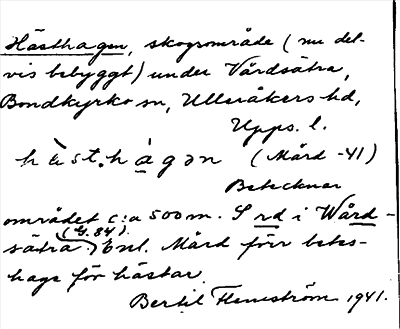 Hästhagen, skogsområde (nu del-
vis bebyggt) under Vårdsätra,
Bondkyrko sn, Ulleråkers hd,
Upps. l.
hàst.hágən (Mård -41)
Betecknar
området c:a 500 m. S rd i Wård-
sätra (G. 84). Enl. Mård förr betes-
hage för hästar.
Bertil Flemström 1941.